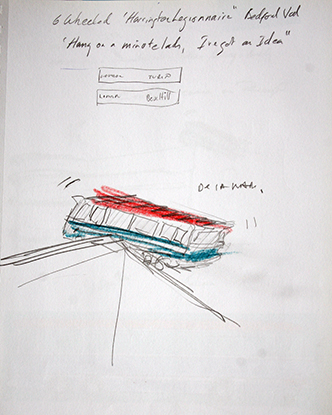 6 Wheeled 'Harrington Legionnaire' Bedford Val
'Hang on a minute lads, I've got an Idea"
TURIN
Bexhill
De La Warr.